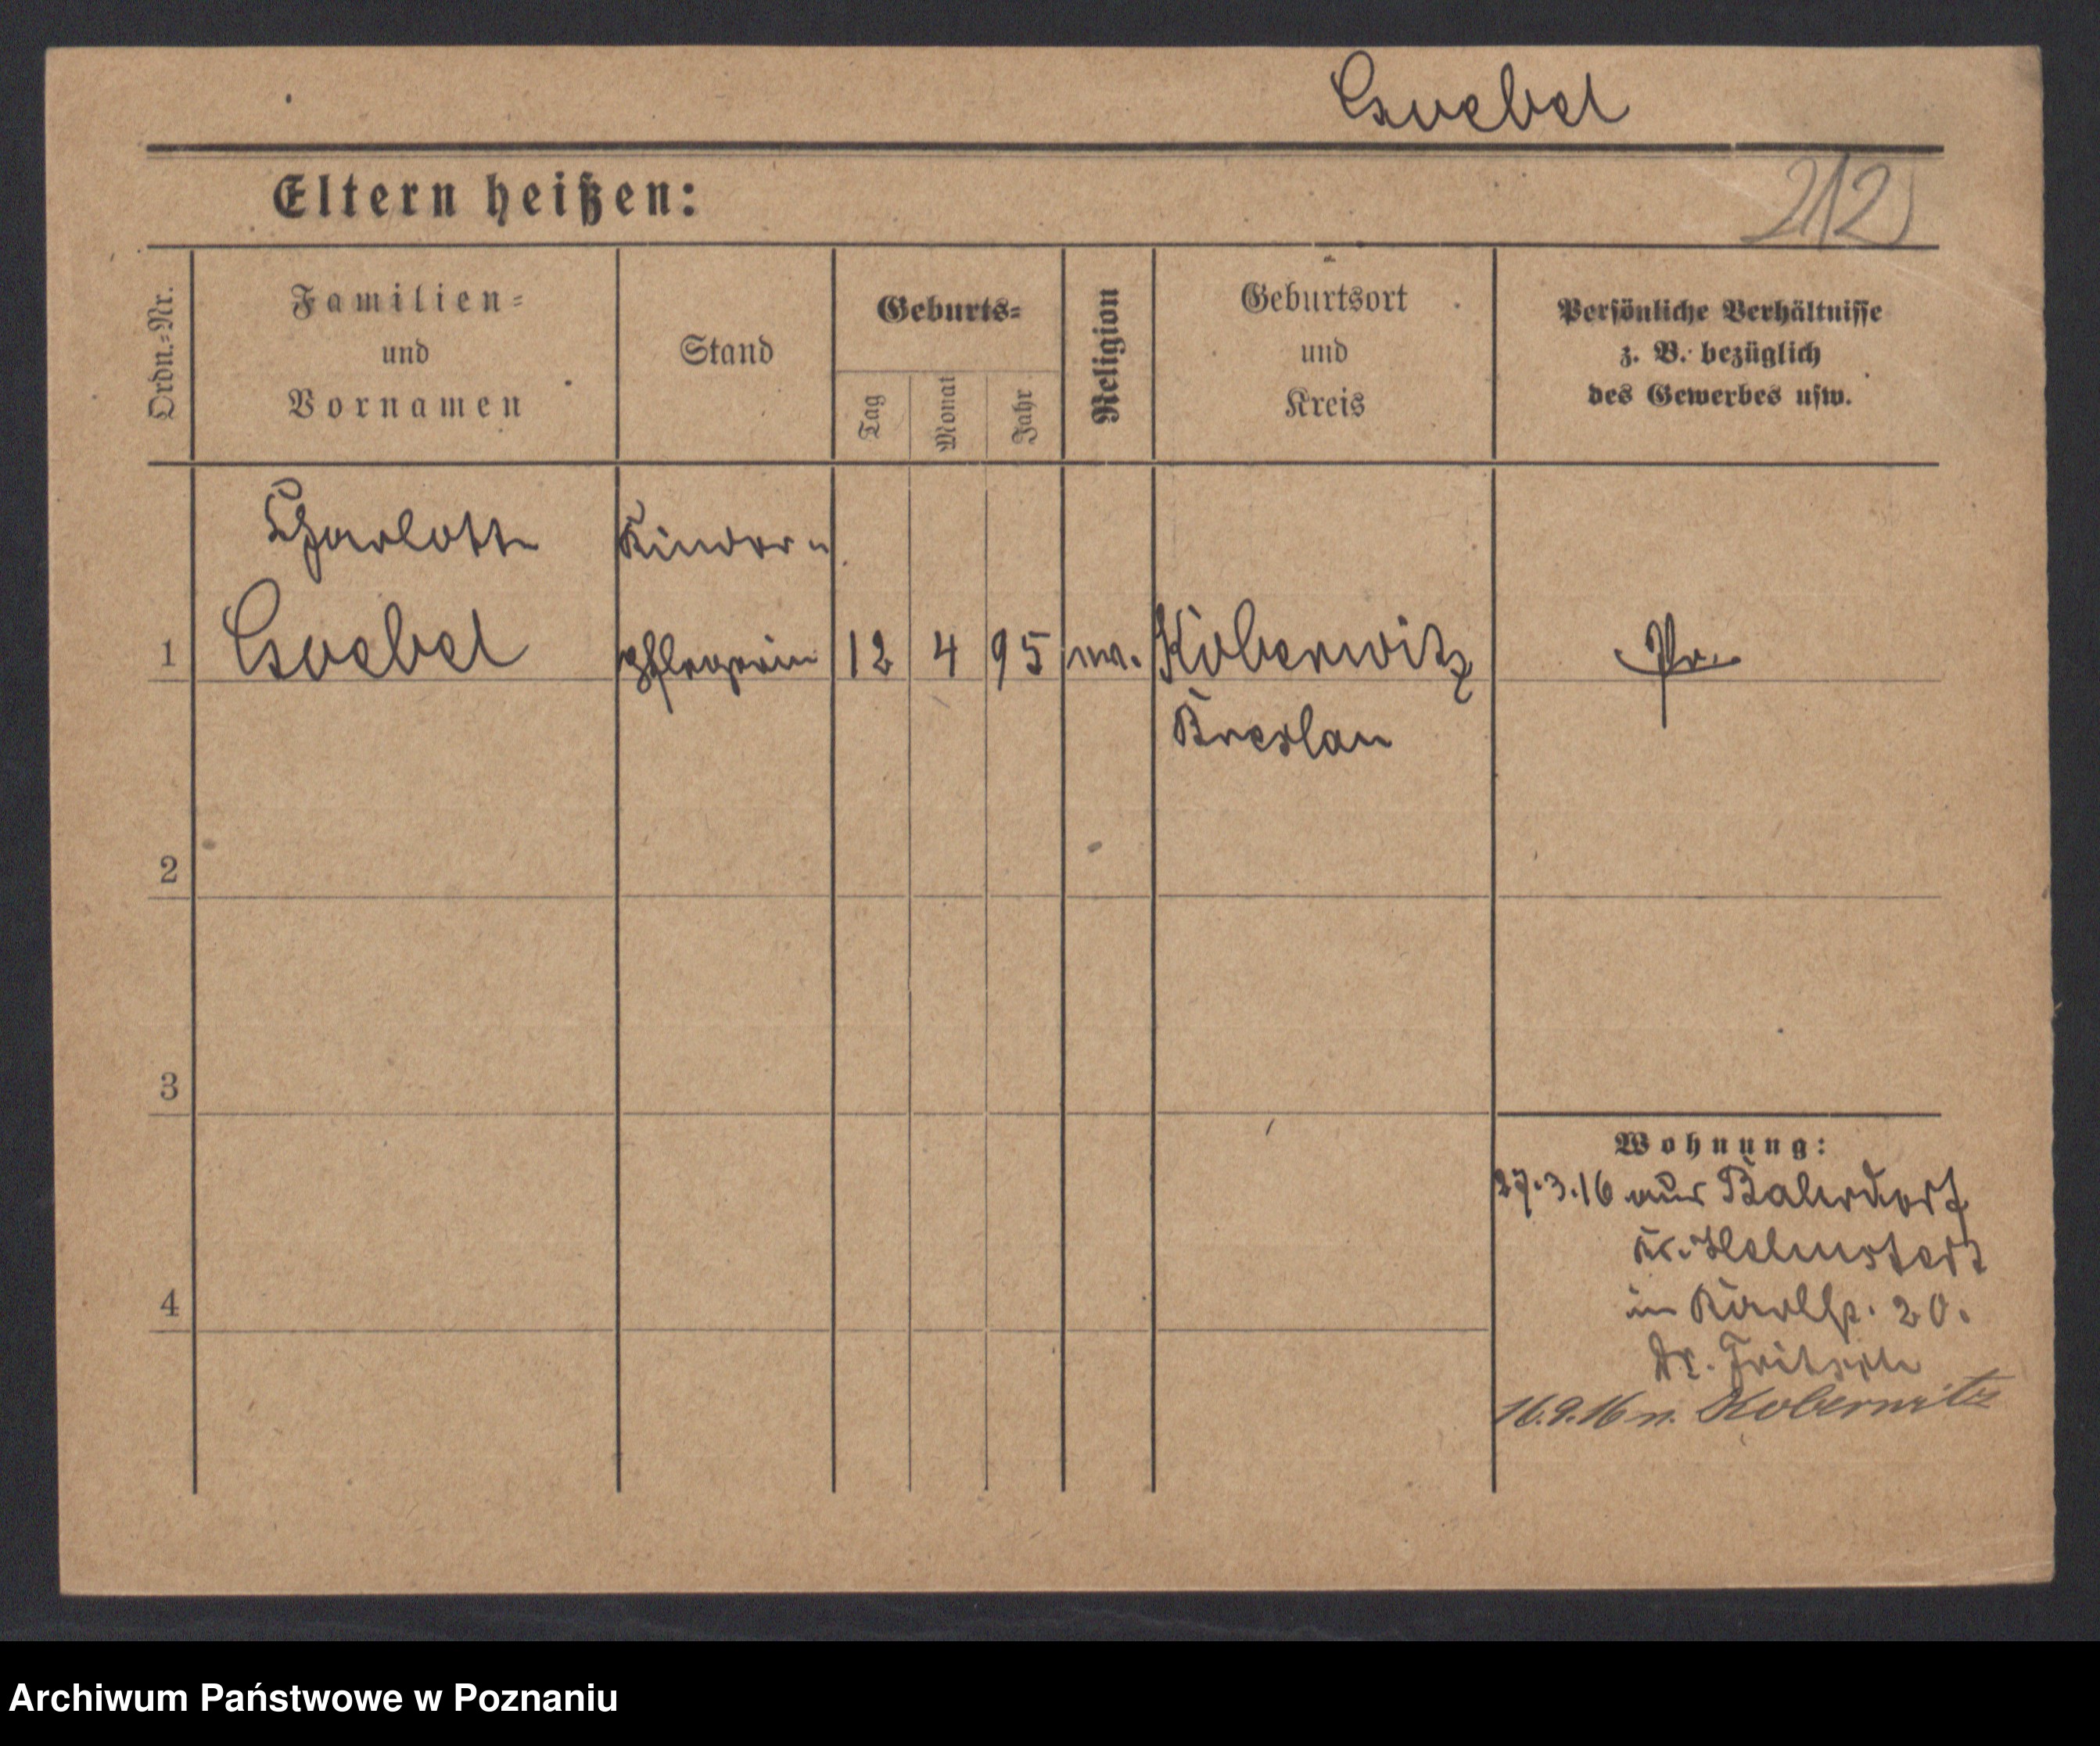 Goebel
Eltern heißen:
212
Ordn.-Nr.
Familien-
und
Vornamen
Stand
Geburts-
Tag
Monat
Jahr
Religion
Geburtsort
und
Kreis
Persönliche Verhältnisse
z. B. bezüglich
des Gewerbes usw.
Charlotte
Kinder-
1
Goebel
pflegerin
12
4
95
Koberwitz
Pr.
Breslau
2
3
Wohnung:
27.3.16 aus Bahrdorf
Kr. Helmstedt
in Karlstr. 20.
4
Dr. Fritsch
16.9.16 n. Koberwitz
Archiwum Państwowe w Poznaniu